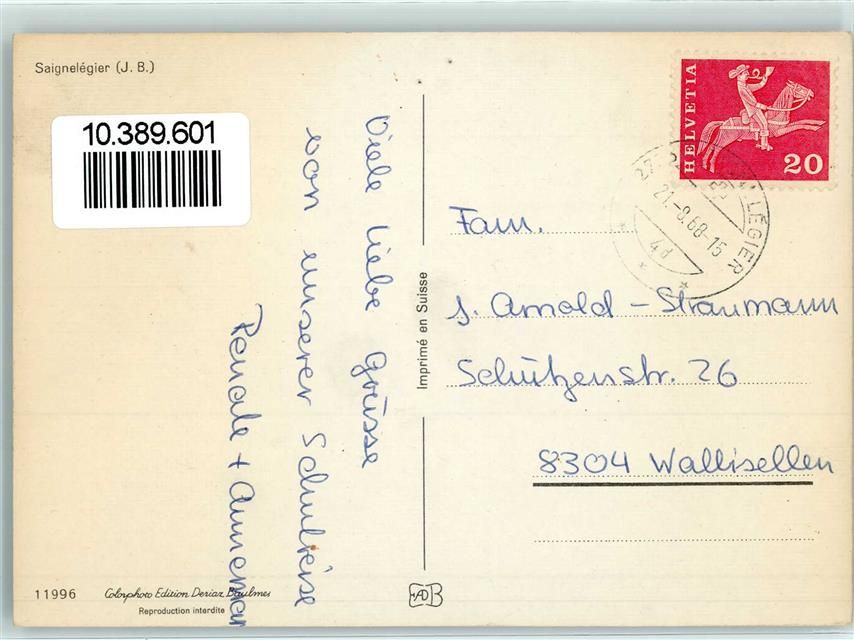 Saignelégier (J. B.)
10.389.601
Viele liebe Grüsse
von unserer Schulreise
Renate + Annemar
11996
Colorphoto Edition Deriaz Baulmes
Reproduction interdite
Imprimé en Suisse
HELVETIA
20
LÉGIER
21.-8.68-15
Fam.
J. Arnold - Straumann
Schützenstr. 26
8304 Wallisellen